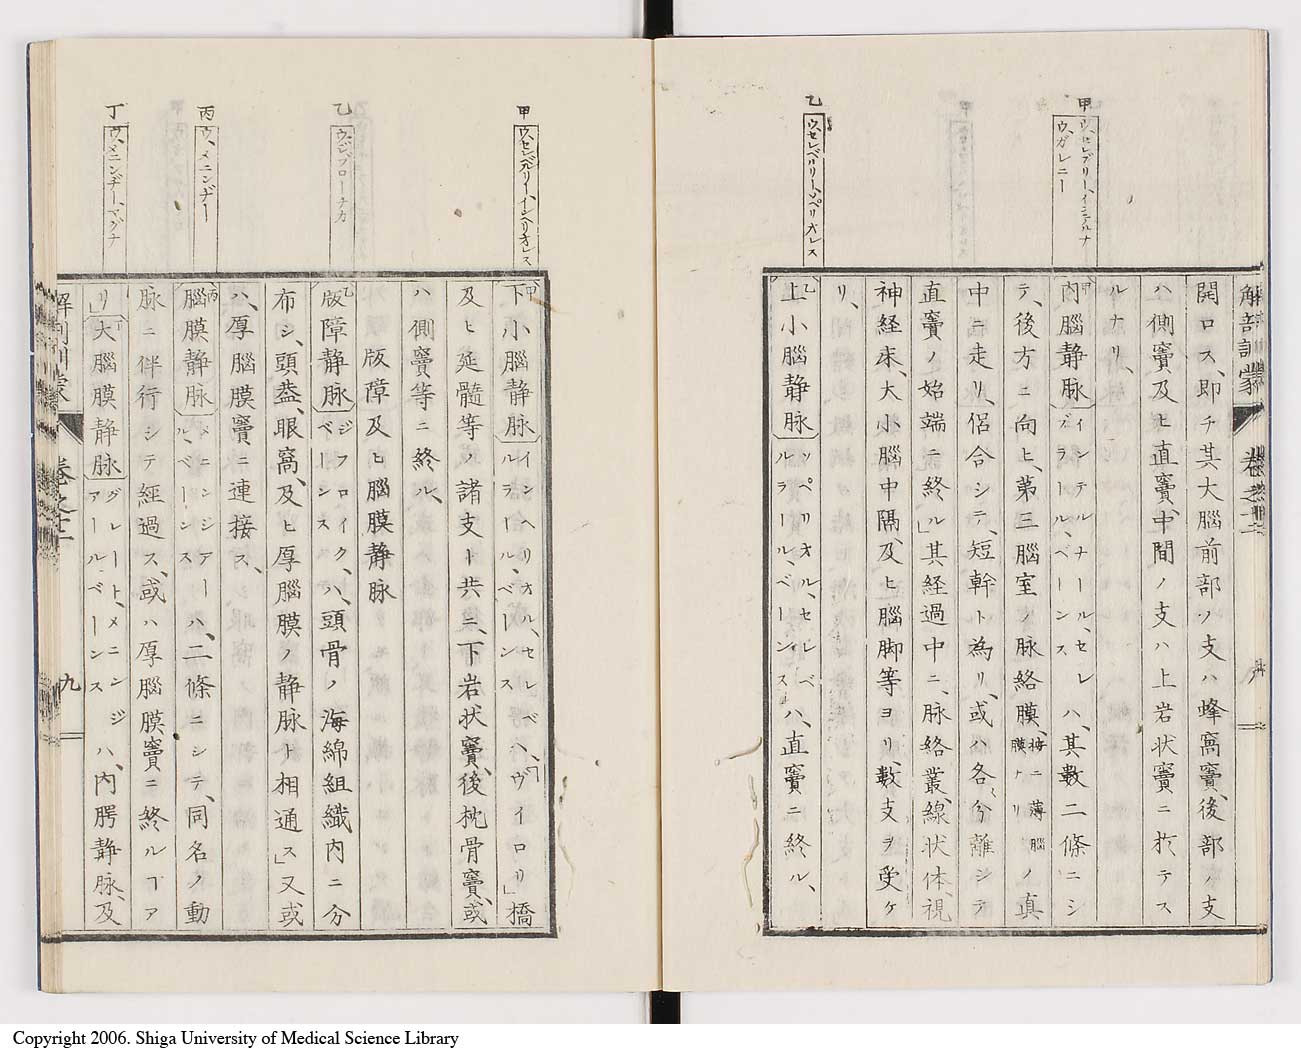 解剖訓蒙 巻之十二
甲
ウ、セレブリー、インテルナ
ウ、ガレニー
乙
ウ、セレベリリー、スペリオレス
開口ス、即チ其大腦前部ノ支ハ蜂窩竇、後部ノ支
ハ側竇及ヒ直竇、中間ノ支ハ上岩状竇ニ於テス
ルナリ、
甲内腦静脉 インテルナール、セレブラール、ベーンス ハ、其數二條ニシ
テ、後方ニ向ヒ、第三腦室ノ脉絡膜、梅ニ薄腦膜ナリノ真
中ニ走リ、侶合シテ、短幹ト為リ、或ハ各〻分離シテ
直竇ノ始端ニ終ル」其経過中ニ、脉絡叢線状体、視
神経床、大小腦中隔、及ヒ腦脚等ヨリ、數支ヲ受ケ
リ、
乙上小腦静脉 シュペリオル、セレベルラール、ベーンス ハ、直竇ニ終ル、
甲
ウ、セレベルリー、インヘリオレス
乙
ウ、ヂプローチカ
丙
ウ、メニンヂー
丁
ウ、メニンヂー、マグナ
甲下小腦静脉 インヘリオル、セレベルラール、ベーンス ハ、ヴイロリ」橋
及ヒ延髓等ノ諸支ト共ニ、下岩状竇、後枕骨竇、或
ハ側竇等ニ終ル、
版障及ヒ腦膜静脉
乙版障静脉 ジプロイク、ベーンス ハ、頭骨ノ海綿組織内ニ分
布シ、頭葢、眼窩、及ヒ厚腦膜ノ静脉ト相通ス」又或
ハ、厚腦膜竇ニ連接ス、
丙腦膜静脉 メニンジアール、ベーンス ハ、二條ニシテ、同名ノ動
脉ニ伴行シテ経過ス、或ハ厚腦膜竇ニ終ルヿア
リ」丁大腦膜静脉 グレート、メニンジアール、ベーンス ハ、内腭静脉、及
解剖訓蒙 巻之十二 九
Copyright 2006. Shiga University of Medical Science Library